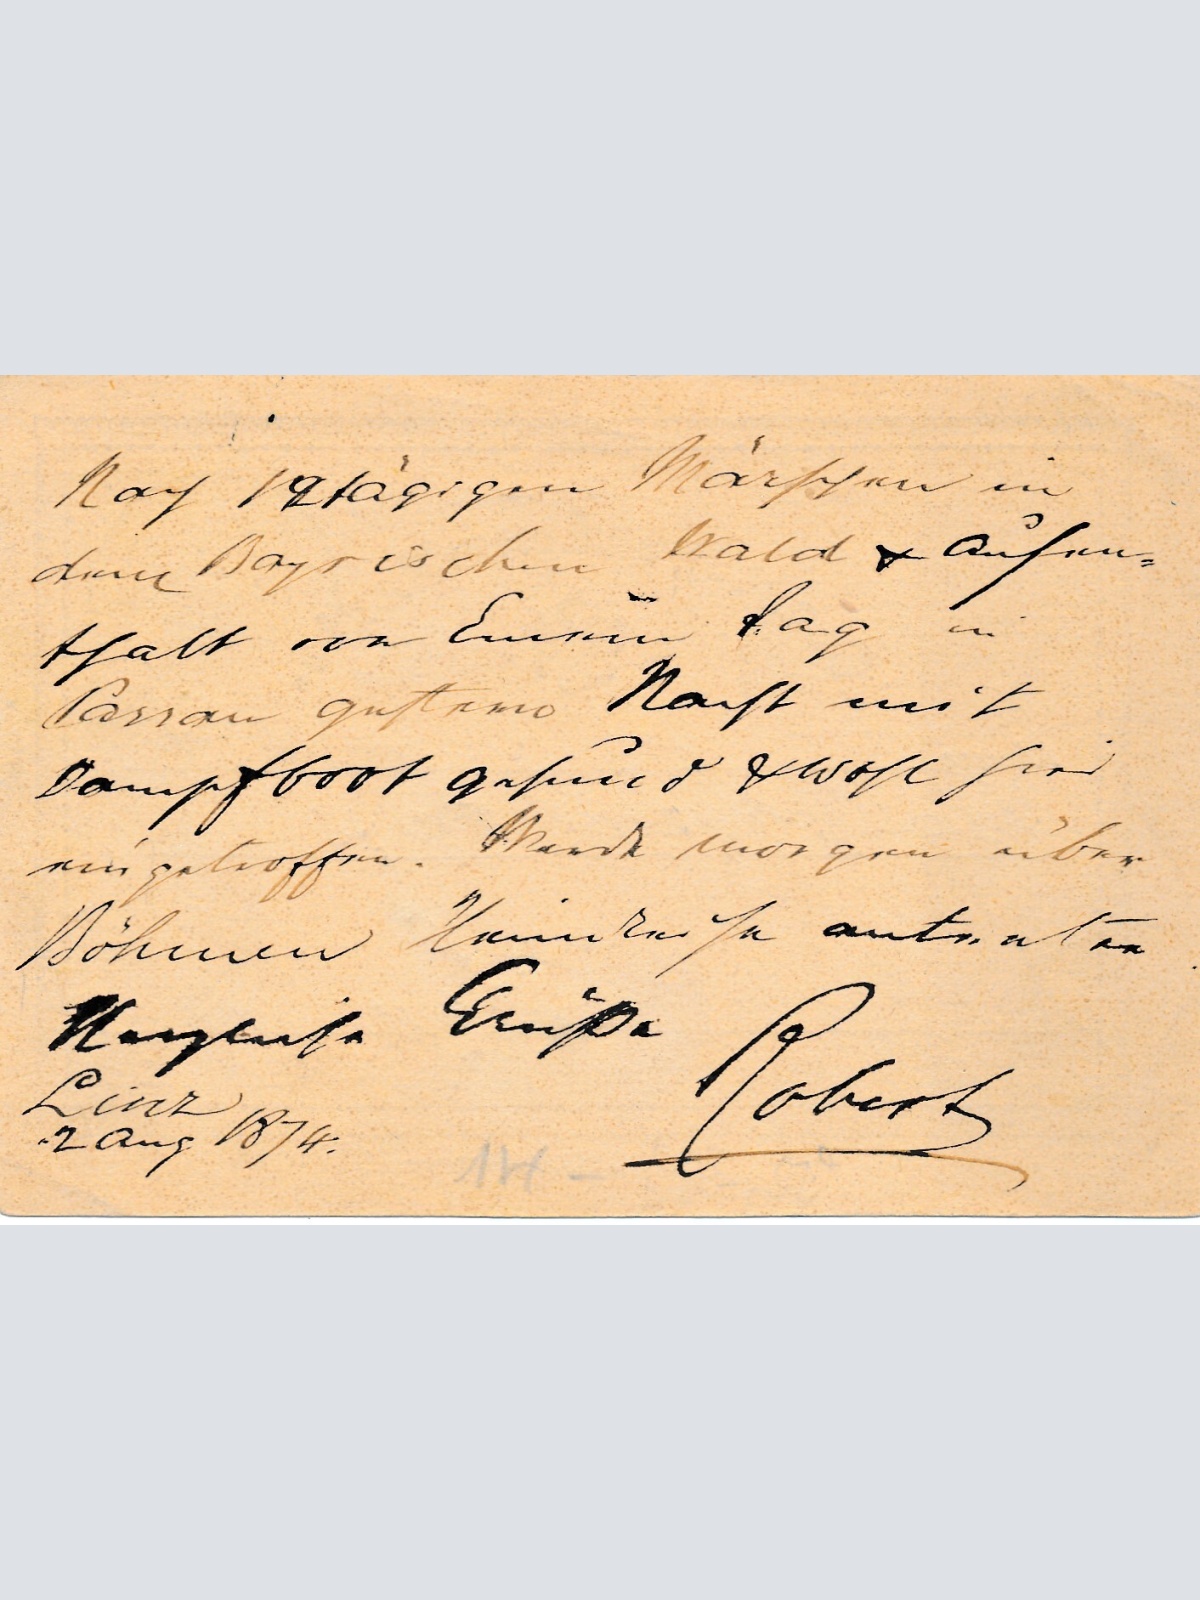 Nach 12tägigen Märschen in
dem Bayrischen Wald & Aufen=
thalt von Einem Tag in
Passau gestern Nacht mit
Dampfboot gesund & wohl hier
eingetroffen. Werde morgen über
Böhmen Heimreise antreten
Herzliche Grüße
Robert
Linz
2 Aug 1874.